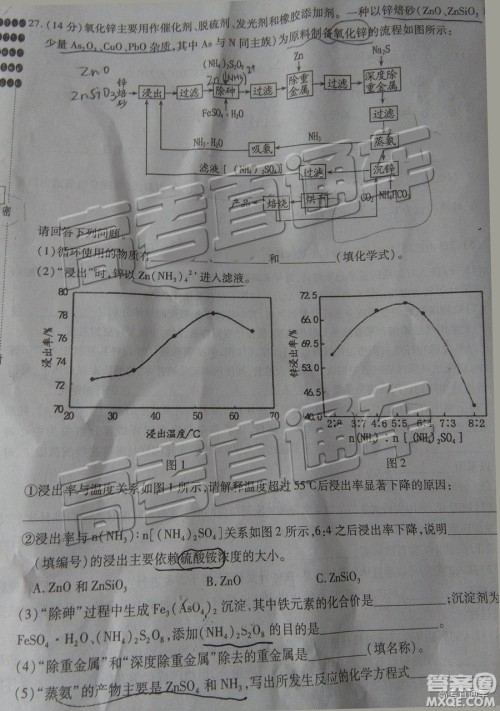 27.(14分)氧化锌主要用作催化剂、脱硫剂、发光剂和橡胶添加剂。一种以锌焙砂(ZnO、ZnSiO₃
少量As₂O₃、CuO、PbO杂质,其中As与N同主族)为原料制备氧化锌的流程如图所示:
ZnO
ZnSiO₃
锌焙砂
浸出
过滤
(NH₄)₂S₂O₈
除砷
FeSO₄·H₂O
过滤
Zn
除重金属
过滤
Na₂S
深度除重金属
过滤
蒸氨
NH₃
吸氨
NH₃·H₂O
沉锌
CO₂ NH₄HCO₃
过滤
滤液[(NH₄)₂SO₄]
烘干
焙烧
产品
密
请回答下列问题
(1)循环使用的物质有 、 和 (填化学式)。
(2)“浸出”时,锌以Zn(NH₃)₄²⁺进入滤液。
浸出率/%
78
76
74
72
70
20 30 40 50 60 70
浸出温度/℃
图1
锌浸出率/%
72.5
66.0
59.5
53.0
46.5
40.0
2:8 3:7 4:6 5:5 6:4 7:3 8:2
n(NH₃):n[(NH₄)₂SO₄]
图2
①浸出率与温度关系如图1所示,请解释温度超过55℃后浸出率显著下降的原因:
②浸出率与n(NH₃):n[(NH₄)₂SO₄]关系如图2所示,6:4之后浸出率下降,说明
(填编号)的浸出主要依赖硫酸铵浓度的大小。
A.ZnO和ZnSiO₃ B.ZnO C.ZnSiO₃
(3)“除砷”过程中生成Fe₃(AsO₄)₂沉淀,其中铁元素的化合价是 ;沉淀剂为
FeSO₄·H₂O、(NH₄)₂S₂O₈,添加(NH₄)₂S₂O₈的目的是 。
(4)“除重金属”和“深度除重金属”除去的重金属是 (填名称)。
(5)“蒸氨”的产物主要是ZnSO₄和NH₃,写出所发生反应的化学方程式
高考直通车
高考直通车
高考直通车
答案圈